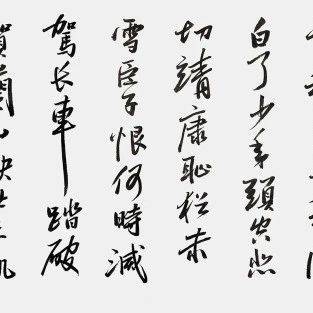 白了少年頭空悲
切靖康恥猶未
雪臣子恨何時滅
駕长車踏破
賀蘭山缺